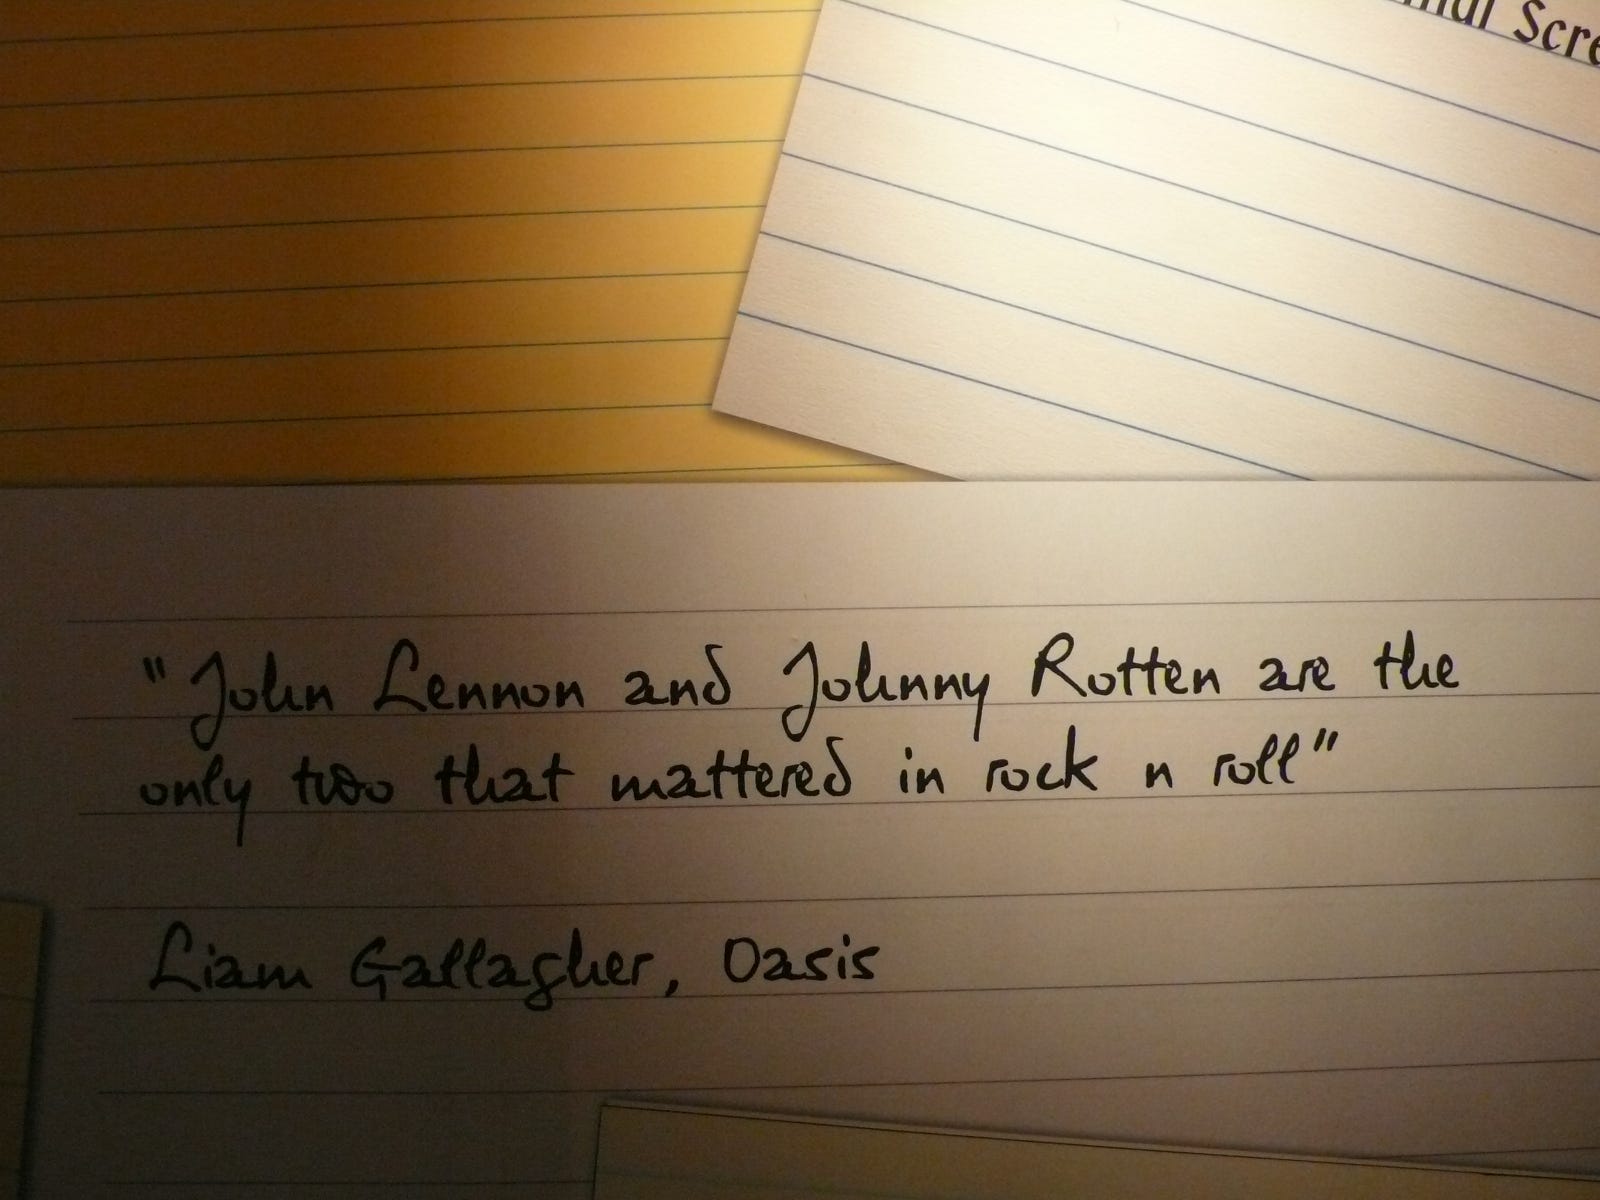 Scre
"John Lennon and Johnny Rotten are the
only two that mattered in rock n roll"
Liam Gallagher, Oasis